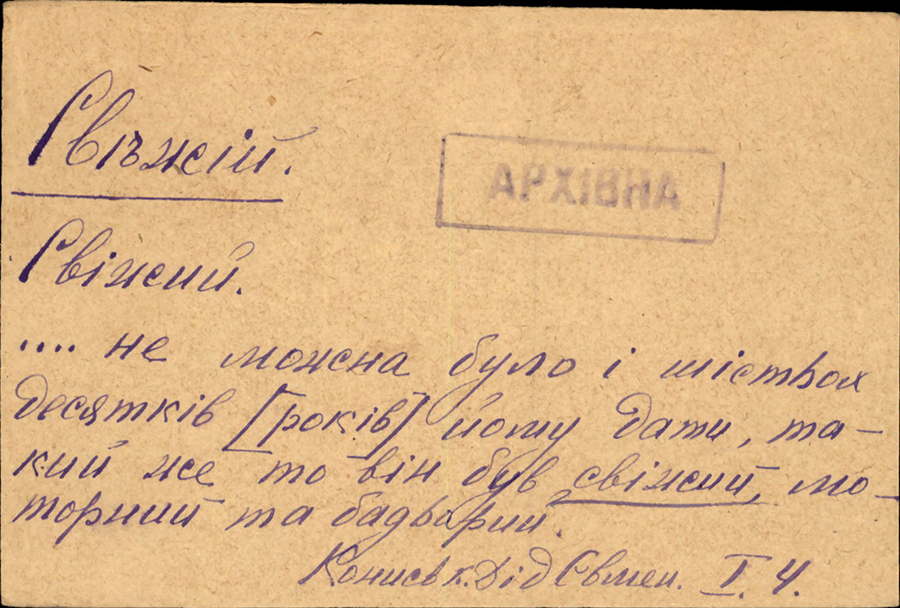 Свѣжій.
АРХІВНА
Свіжий.
.... не можна було і шістьох
десятків [років] йому дати, та-
кий же то він був свіжий, мо-
торний та бадьорий.
Кониськ. Дід Євмен. I. 4.